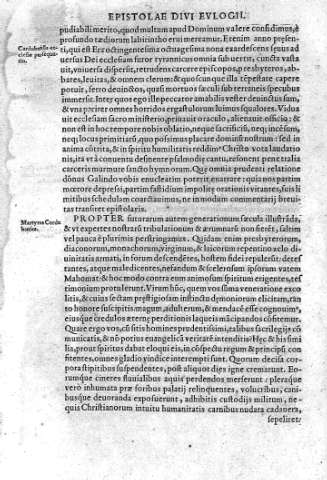 EPISTOLAE DIVI EVLOGII.
pudiabili merito, quod multum apud Dominum valere confidimus, è
profundo tædiorum labirintho erui mereamur. Etenim anno præsen
ti, qui est Era octingentesima octuagesima nona exardescens sæuus ad
uersus Dei ecclesiam furor tyrannicus omnia subuertit, cuncta vasta
uit, vniuersa dispersit, retrudens carcere episcopos, presbyteros, ab
bates, leuitas, & omnem clerum: & quoscunque illa tēpestate capere
potuit, ferro deuinctos, quasi mortuos sæculi sub terraneis specubus
immersit. Inter quos ego ille peccator amabilis vester deuinctus sum,
& vna pariter omnes horridos ergastulorum luimus squalores. Vidua
uit ecclesiam sacro ministerio, priuauit oraculo, alienauit officio: &
non est in hoc tempore nobis oblatio, neque sacrificiū, neque incēsum,
neque locus primitiarū, quo possimus placare dominū nostrum: sed in
anima cōtrita, & in spiritu humilitatis reddimꝰ Christo vota laudatio
nis, ita vt à conuentu desinente psalmodię cantu, resonent penetralia
carceris murmure sancto hymnorum. Quæ omnia prudens relatione
donus Galindo vobis enucleatim poterit enarrare: quia nos partim
mœrore depressi, partim fastidium impolitę orationis vitantes, suis li
mitibus schedulam coarctauimus, ne immodum commentarij breui
tas transiret epistolaris.
Cordubensis ec
clesiæ persequu
tio.
PROPTER futurarum autem generationum sæcula illustrāda,
& vt expertes nostrarū tribulationum & ærumnarū non fierēt, saltim
vel pauca è plurimis perstringamus. Quidam enim presbyterorum,
diaconorum, monachorum, virginum, & laicorum repentino zelo di
uinitatis armati, in forum descendētes, hostem fidei repulerūt: detes
tantes, atque maledicentes, nefandum & scelerosum ipsorum vatem
Mahomat: & hoc modo contra eum animosum spiritum erigentes, tes
timonium protulerunt. Virum hūc, quem vos summa veneratione exco
litis, & cuius sectam prestigiosam instinctu dęmonum elicitam, tan
to honore suscipitis, magum, adulterum, & mendacē esse cognouimꝰ,
eiusque credulos æternę perditionis laqueis mācipandos cōfitemur.
Quare ergo vos, cū sitis homines prudentissimi, talibus sacrilegijs cō
municatis, & nō potius euangelicā veritatē intenditis? Hęc & his si mi
lia, prout spiritus dabat eloqui eis, in cōspectu regum & principū con
fitentes, omnes gladio vindice interempti sunt. Quorum decisa cor
pora stipitibus suspendentes, post aliquot dies igne cremarunt. Eo-
rumque cineres fluuialibus aquis perdendos merserunt: pleraque
verò inhumata præ foribus palatij relinquentes, volucribus, cani-
busque deuoranda exposuerunt, adhibitis custodijs militum, ne-
quis Christianorum intuitu humanitatis carnibus nudata cadauera,
sepeliret/
Martyres Cordu
benses.